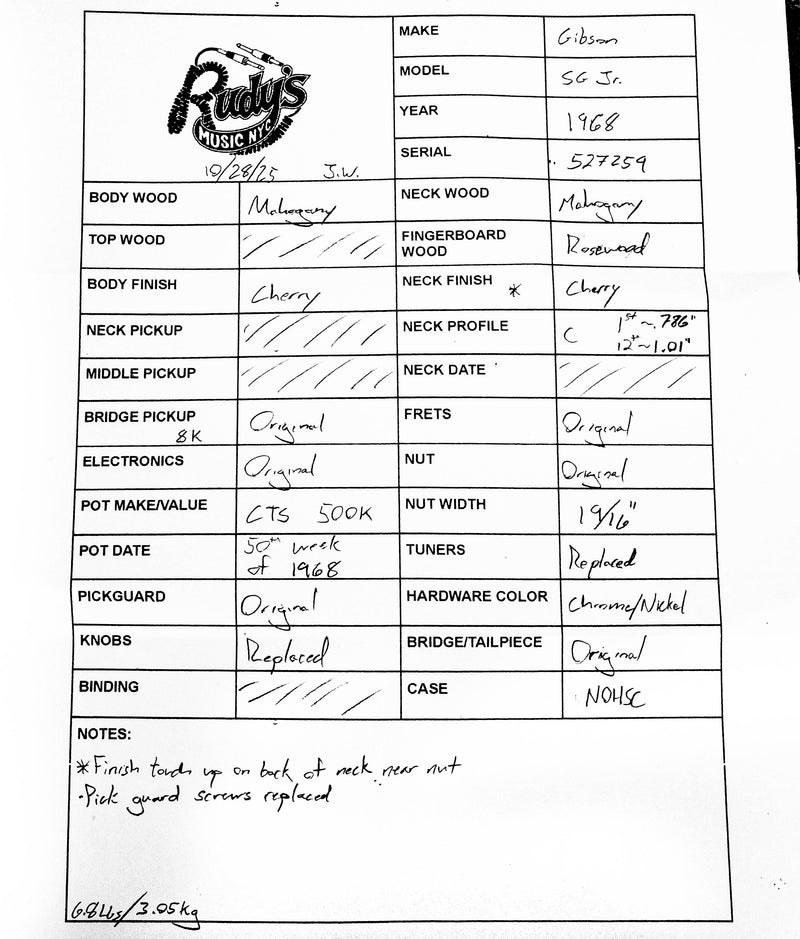 Rudy's
MUSIC NYC
10/28/25 J.W.
MAKE Gibson
MODEL SG Jr.
YEAR 1968
SERIAL 527259
BODY WOOD Mahogany NECK WOOD Mahogany
TOP WOOD FINGERBOARD WOOD Rosewood
BODY FINISH Cherry NECK FINISH * Cherry
NECK PICKUP NECK PROFILE C 1st ~.786"
12th ~1.01"
MIDDLE PICKUP NECK DATE
BRIDGE PICKUP Original FRETS Original
8K
ELECTRONICS Original NUT Original
POT MAKE/VALUE CTS 500K NUT WIDTH 19/16"
POT DATE 50th week TUNERS Replaced
of 1968
PICKGUARD Original HARDWARE COLOR Chrome/Nickel
KNOBS Replaced BRIDGE/TAILPIECE Original
BINDING CASE NOHSC
NOTES:
*Finish touch up on back of neck near nut
·Pick guard screws replaced
6.8Lbs/3.05kg